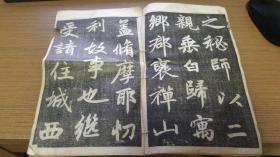 之秘師以二
親垂白歸寓
鄉郡褒禪山
蓋脩摩耶忉
利故事也繼
受請住城西